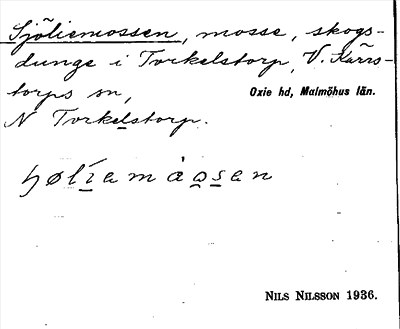 Sjöliemossen, mosse, skogs-
dunge i Torkelstorp, V. Kärrs-
torps sn,
Oxie hd, Malmöhus län.
N Torkelstorp.
ɧølíamåosan
NILS NILSSON 1936.